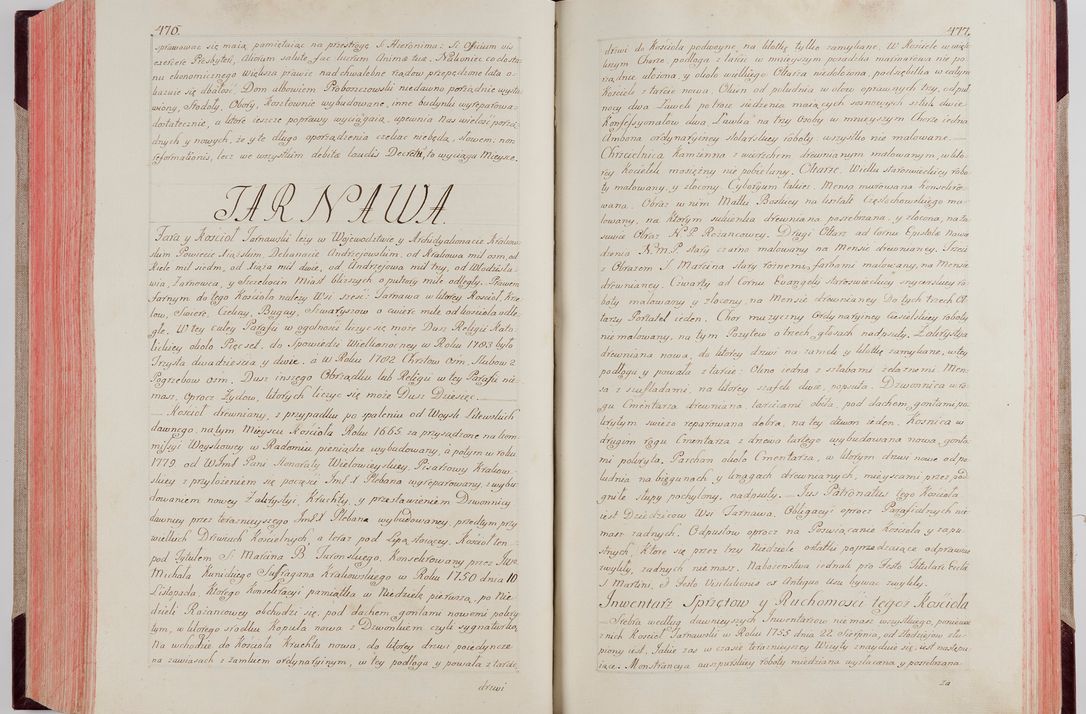 476.
sprawować się maią, pamiętaiąc na przestrogę S. Hieronima: Si Officium vis
exercere Presbyteri, aliorum salute fac lucrum Animæ tuæ. Nakoniec co do sta-
nu ekonomicznego większa prawie nad chwalebne rządow przepędzone lata o-
kazuie się dbałość. Dom albowiem Proboszczowski niedawno porządnie wysta-
wiony, Stodoły, Obory, kosztownie wybudowane, inne budynki wyreparowa-
dostatecznie, a ktore ieszcze poprawy wyciągaią, upewnia Nas wielość porzą-
dnych y nowych, że y te długo oporządzenia czekać niebędą, słowem, non
reformationis, lecz we wszystkim debitæ laudis Decretu, to wyciąga Mieysce.
TARNAWA.
Fara y Kościoł Tarnawski leży w Woiewodztwie, y Archidyakonacie Krakow-
skim Powiecie Xiążskim, Dekanacie Andrzeiowskim, od Krakowa mil osm, od
Kielc mil siedm, od Xiąża mil dwie, od Andrzeiowa mil trzy, od Włodzisła-
wia, Żarnowca, y Szczekocin Miast bliższych o połtory mile odległy. Prawem
Farnym do tego Kościoła należy Wsi sześć: Tarnawa w ktorey Kościoł, Krze-
low, Swierc, Cieliny, Bugay, Szwaryszow o cwierć mile od kościoła odle-
głe. W tey całey Parafii w ogolności liczyć się może Dusz Religii Kato-
lickiey około Pięćset. do Spowiedzi Wielkanocney w Roku 1783 było
Trzysta dwadzieścia y dwie. a w Roku 1782 Chrztow osm, Slubow 2
Pogrzebow osm. Dusz inszego Obrządku lub Religii w tey Parafii nie-
masz, oprocz Żydow, ktorych liczyć się może Dusz Dziesięć.
— Kościoł drewniany, z przypadku po spaleniu od Woysk Litewskich
dawnego na tym Mieyscu Kościoła Roku 1665 za przysądzone na kom-
missyi Woyskowey w Radomiu pieniądze wybudowany, a potym w roku
1779. od WJmć Pani Honoraty Wielowieyskiey, Pisarzowy Krakow-
skiey z przyłożeniem się poczęści Jmć X Plebana wyreparowany, z wybu-
dowaniem nowey Zakrystyi, Kruchty, y przestawieniem Dzwonnicy
dawniey przez teraznieyszego Jmć X Plebana wybudowaney, przedtym przy
wielkich Drzwiach Kościelnych, a teraz pod Lipą stoiącey. Kościoł ten
pod Tytułem S. Marcina B. Turonskiego, Konsekrowany przez JW.
Michała Kunickiego Suffragana Krakowskiego w Roku 1750 dnia 10
Listopada, ktorego Konsekracyi pamiątka w Niedzielę pierwszą, po Nie-
dzieli Rożancowey obchodzi się, pod dachem gontami nowemi pokry-
tym, w ktorego srodku Kopuła nowa z Dzwonkiem czyli sygnaturką
Na wchodzie do Kościoła Kruchta nowa, do ktorey drzwi poiedyncze
na zawiasach z zamkiem ordynaryinym, w tey podłoga y powała z tarcic,
drzwi
477.
drzwi do Kościoła podwoyne, na klotkę tylko zamykane. W Kościele w więk-
kszym Chorze, podłoga z tarcic w mnieyszym posadzka marmurowa nie po-
rządnie ułożona, y około wielkiego Ołtarza niedołożona, podsiębitka w całym
Kościele z tarcic nowa. Okien od południa w ołow oprawnych trzy, od puł-
nocy dwa. Ławek po troie siedzenia maiących sosnowych sztuk dwie.
Konfessyonałow dwa. Ławka na trzy Osoby w mnieyszym Chorze iedna
Ambona ordynaryiney stolarskiey roboty, wszystko nie malowane.
Chrzcielnica Kamienna z wierzchem drewnianym malowanym, w kto-
rey Kociełek mosiężny nie pobielany. Ołtarze. Wielki staroswieckiey robo-
ty malowany, y złocony. Cyboryum takież. Mensa murowana Konsekro-
wana. Obraz w nim Matki Boskiey na kształt Częstochowskiego ma-
lowany, na ktorym sukienka drewniana posrebrzana, y złocona, na za-
suwie Obraz N. P. Rożancowey. Drugi Ołtarz ad Cornu Epistolæ Naro-
dzenia N. M. P stary czarno malowany na Mensie drewnianey. Trzeci
z Obrazem S. Marcina stary rożnemi farbami malowany, na Mensie
drewnianey. Czwarty ad Cornu Evangely staroswieckiey snycerskiey ro-
boty malowany y złocony, na Mensie drewnianey. Do tych trzech Oł-
tarzy Portatel ieden. Chor muzyczny Ordynaryiney Ciesielskiey roboty
nie malowany, na tym Pozytew o trzech głosach nadpsuty. Zakrystya
drewniana nowa, do ktorey drzwi na zamek y klotkę zamykane, w tey
podłoga y powała z tarcic. Okno iedno z sztabami żelaznemi. Men-
sa z szufladami, na ktorey szafek dwie, popsuta. Dzwonnica w ro-
gu Cmentarza drewniana, tarcicami obita, pod dachem gontami po-
krytym swieżo reparowana dobra, na tey dzwon ieden. Kosnica w
drugim rogu Cmentarza z drzewa tartego wybudowana nowa, gonta-
mi pokryta. Parkan około Cmentarza, w ktorym drzwi nowe od po-
łudnia na biegunach y wagach drewnianych, mieyscami przez pod-
gniłe słupy pochylony, nadpsuty. — Jus Patronatus tego Kościoła
iest Dziedzicow Wsi Tarnawa. Obligacyi oprocz Parafialnych nie
masz żadnych. Odpustow oprocz na Poswiącanie Kościoła y zapu-
stnych, ktore się przez trzy Niedziele ostatkie poprzedzaiące odprawuią
zwykły, żadnych nie masz. Nabożenstwa iednak pro Festo Titulari Eccle
S. Martini, et Festo Visitationis ex Antiquo usu bywać zwykły.
Inwentarz Sprzętow y Ruchomości tegoż Kościoła
— Srebra według dawnieyszych Inwentarzow nie masz wszystkiego, ponieważ
z nich Kościoł Tarnawski w Roku 1755 dnia 22 Sierpnia, od złodzieiow złu-
piony iest. Jakie zas w czasie teraznieyszey Wizyty znayduie się, iest następu-
iące. Monstrancya auspurskiey roboty miedziana wyzłacana, y posrebrzana
za